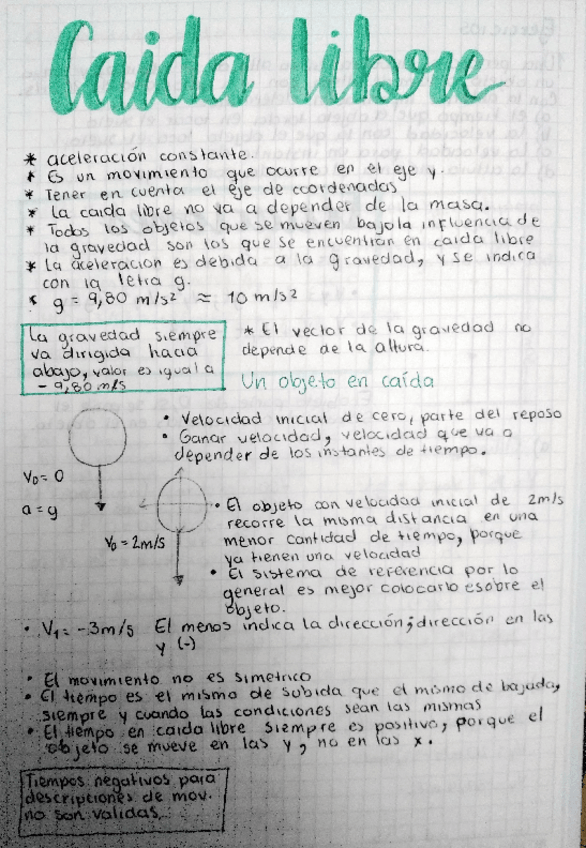 Caida libre
* aceleración constante.
* Es un movimiento que ocurre en el eje y.
* Tener en cuenta el eje de coordenadas
* La caida libre no va a depender de la masa.
* Todos los objetos que se mueven bajo la influencia de
la gravedad son los que se encuentran en caida libre
* La aceleracion es debida a la gravedad, y se indica
con la letra g.
* g = 9,80 m/s² ≈ 10 m/s²
La gravedad siempre
va dirigida hacia
abajo, valor es igual a
- 9,80 m/s
* El vector de la gravedad no
depende de la altura.
Un objeto en caída
• Velocidad inicial de cero, parte del reposo
• Ganar velocidad, velocidad que va a
depender de los instantes de tiempo.
V₀= 0
a = g
V₀ = 2m/s
• El objeto con velocidad inicial de 2m/s
recorre la misma distancia en una
menor cantidad de tiempo, porque
ya tienen una velocidad
• El sistema de referencia por lo
general es mejor colocarlo esobre el
objeto.
• V₁ = -3m/s El menos indica la dirección; dirección en las
y (-)
• El movimiento no es simetrico
• El tiempo es el mismo de subida que el mismo de bajada,
siempre y cuando las condiciones sean las mismas
• El tiempo en caida libre siempre es positivo, porque el
objeto se mueve en las y, no en las x.
Tiempos negativos para
descripciones de mov.
no son validas.